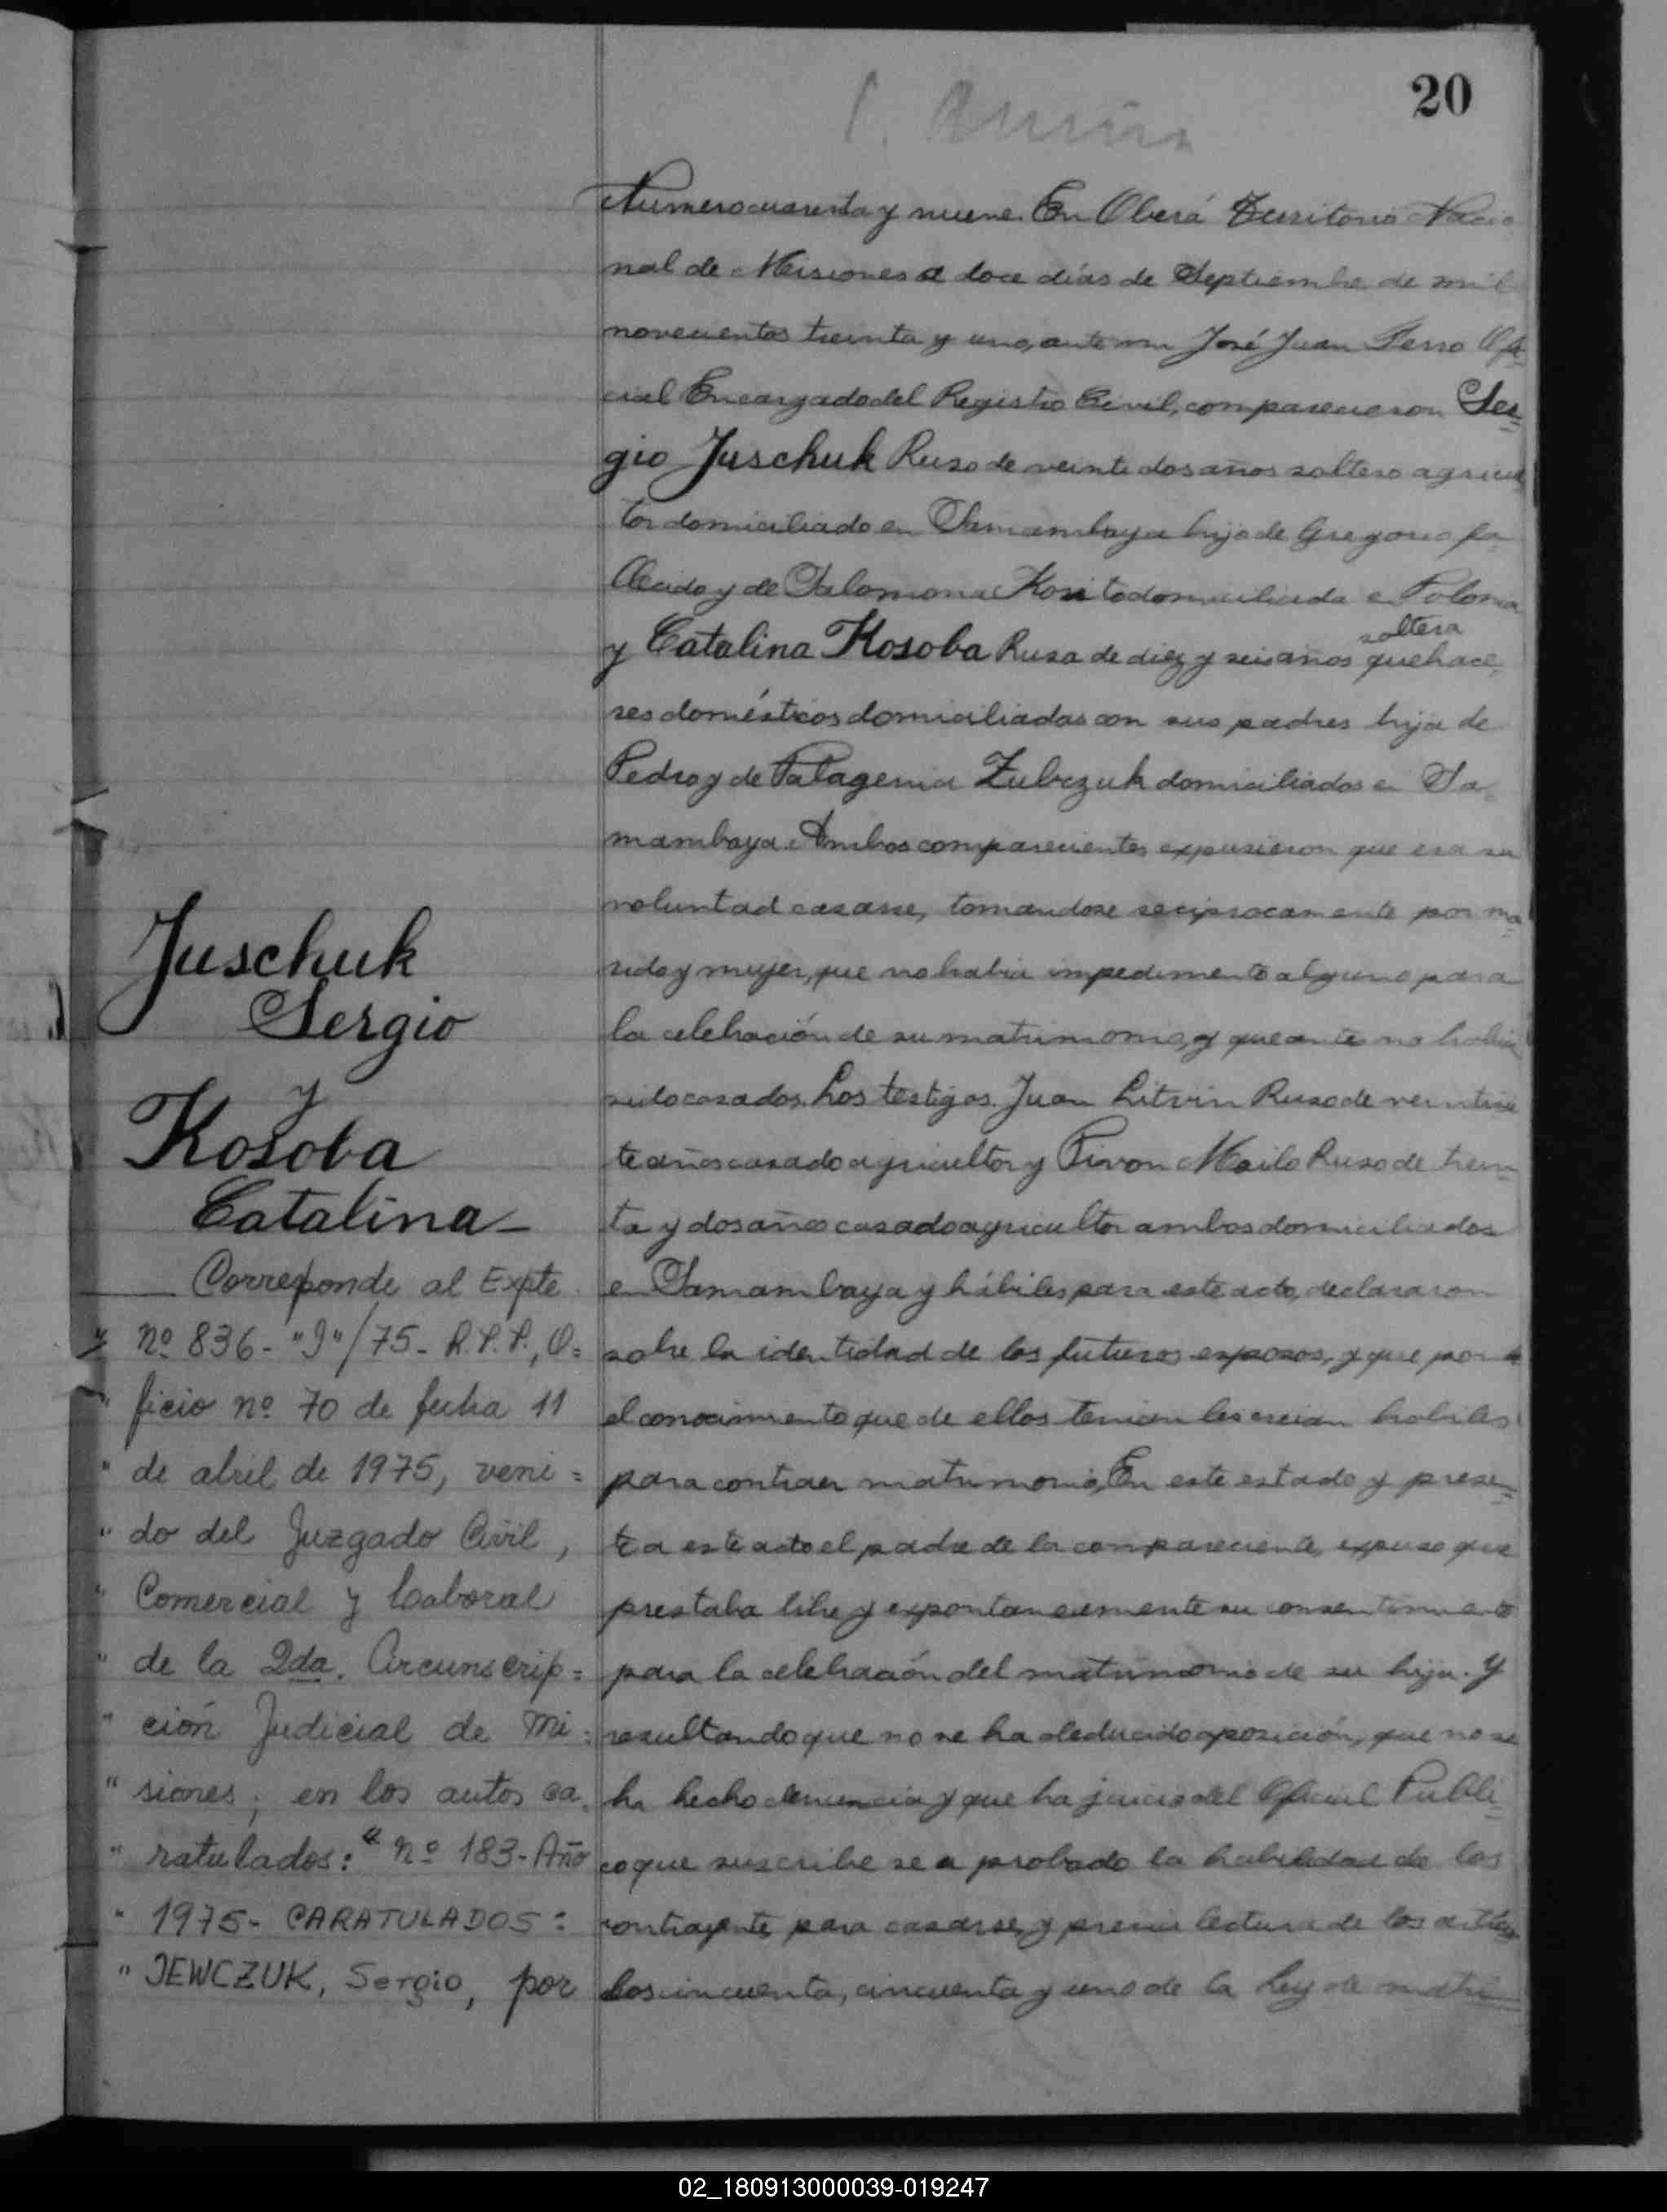 20
Numero cuarenta y nueve. En Oberá Territorio Nacio
nal de Misiones a doce días de Septiembre de mil
novecientos treinta y uno, ante mi José Juan Ferro Ofi-
cial Encargado del Registro Civil, comparecieron Ser=
gio Juschuk Ruso de veinte dos años soltero agricul
tor domiciliado en Samambaya hijo de Gregorio fa-
llecido y de Salomona domiciliada en Polonia
soltera
y Catalina Kosoba Rusa de diez y seis años quehace-
res domésticos domiciliadas con sus padres hija de
Pedro y de Palagenia Zubczuk domiciliados en Sa-
mambaya. Ambos comparecientes expusieron que era su
voluntad casarse, tomandose reciprocamente por ma
rido y mujer, que no habia impedimento alguno para
la celebración de su matrimonio, y que antes no habian
sido casados. Los testigos. Juan Litvin Ruso de veintisie
te años casado agricultor y Pivon Mailo Ruso de trein-
ta y dos años casado agricultor ambos domiciliados
en Samambaya y hábiles para este acto, declararon
sobre la identidad de los futuros esposos, y que por
el conocimiento que de ellos tenian les creian habiles
para contraer matrimonio, En este estado y presen=
te a este acto el padre de la compareciente, expuso que
prestaba libre y expontaneamente su consentimiento
para la celebración del matrimonio de su hija. Y
resultando que no se ha deducido oposición, que no se
ha hecho denuncia y que ha juicio del Oficial Publi=
co que suscribe se a probado la habilidad de los
contrayente, para casarse, y previa lectura de los artícu
los cincuenta, cincuenta y uno de la Ley de matri=
Juschuk
Sergio
y
Kosoba
Catalina-
Correponde al Expte.
nº 836- "J"/75- R.P.P., O=
" ficio nº 70 de fecha 11
" de abril de 1975, veni=
" do del Juzgado Civil,
" Comercial y Laboral
" de la 2da. Circunscrip=
" ción Judicial de Mi=
" siones; en los autos ca.
" ratulados: "nº 183-Año
" 1975- CARATULADOS:
" JEWCZUK, Sergio, por
02_180913000039-019247